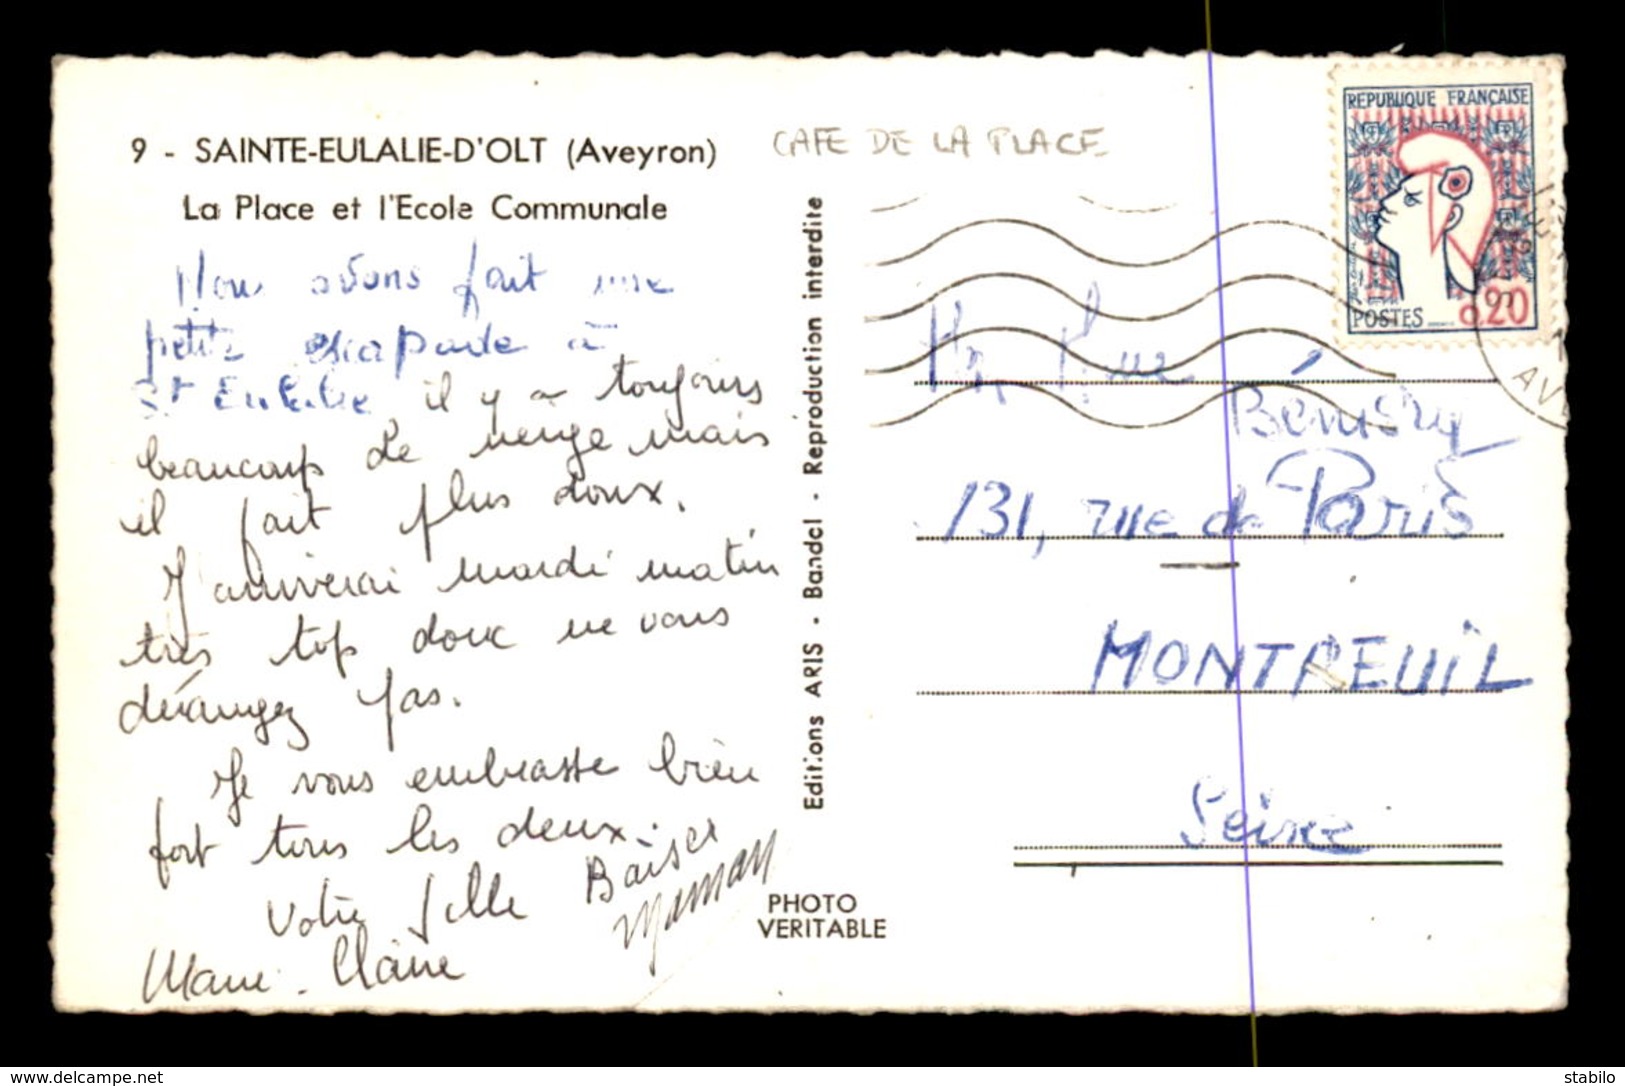 9 - SAINTE-EULALIE-D'OLT (Aveyron)
La Place et l'Ecole Communale
CAFE DE LA PLACE
Nous avons fait une
petite escapade à
St Eulalie il y a toujours
beaucoup de neige mais
il fait plus doux.
J'arriverai mardi matin
très top donc ne vous
dérangez pas.
Je vous embrasse bien
fort tous les deux.
Votre fille
Marie-Claire
Baiser
Maman
Editions ARIS - Bandol - Reproduction interdite
PHOTO
VERITABLE
REPUBLIQUE FRANÇAISE
POSTES 0,20
AV
131, rue de Paris
MONTREUIL
Seine
https://www.delcampe.net
stabilo